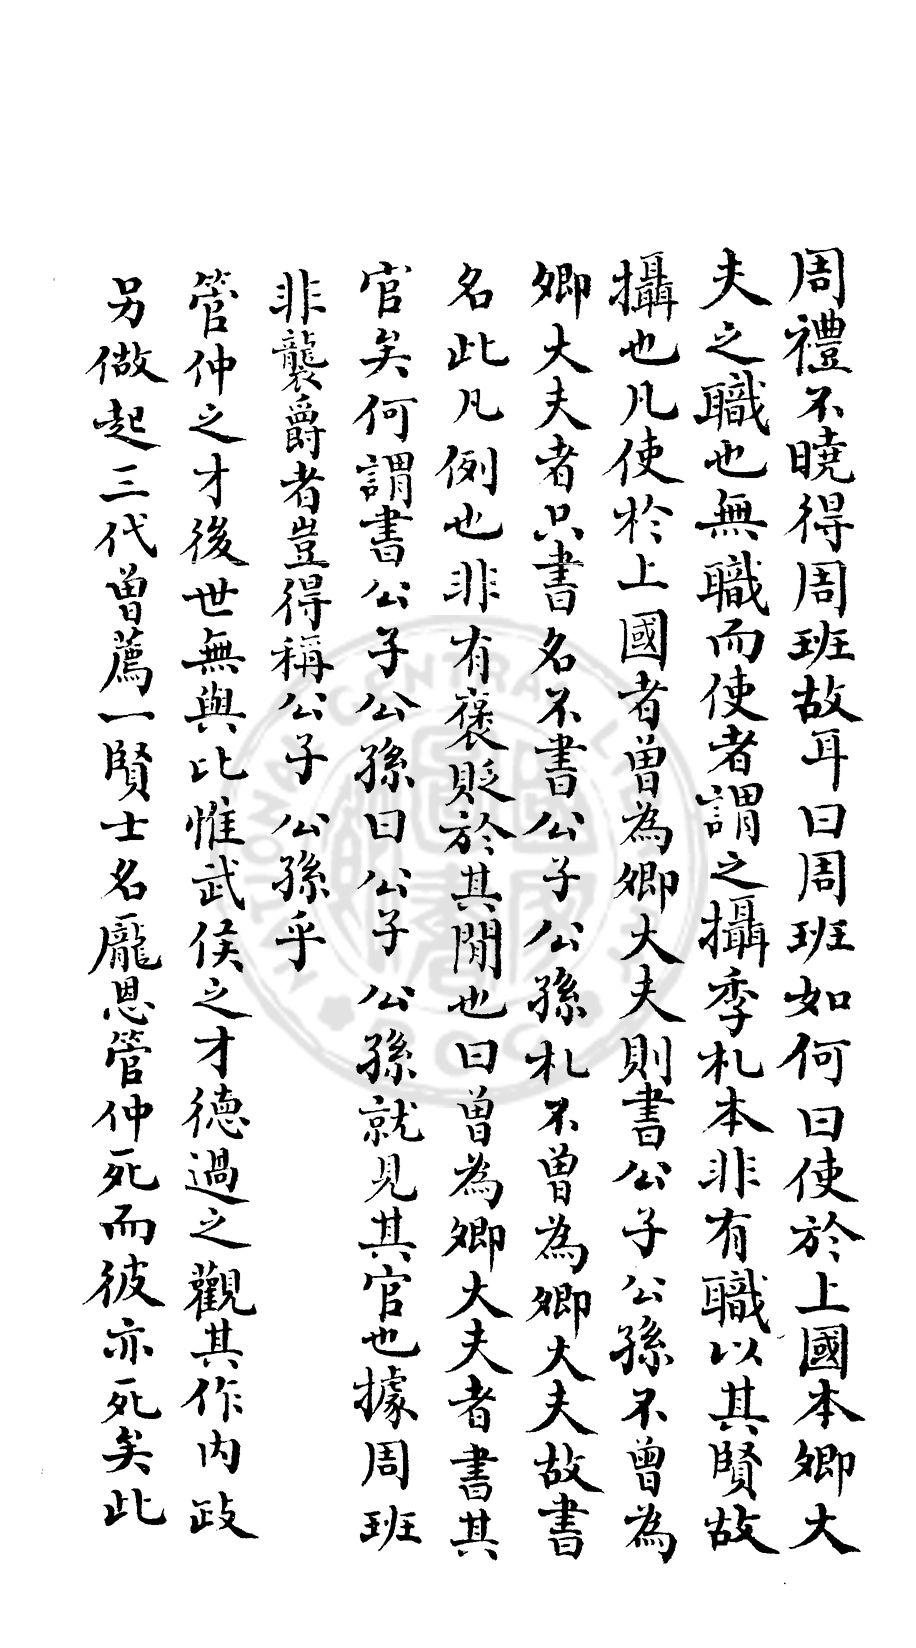 周禮不曉得周班故耳曰周班如何曰使於上國本卿大
夫之職也無職而使者謂之攝季札本非有職以其賢故
攝也凡使於上國者曾為卿大夫則書公子公孫不曾為
卿大夫者只書名不書公子公孫札不曾為卿大夫故書
名此凡例也非有褒貶於其間也曰曾為卿大夫者書其
官矣何謂書公子公孫曰公子公孫就見其官也據周班
非襲爵者豈得稱公子公孫乎
管仲之才後世無與比惟武侯之才德過之觀其作內政
另做起三代曾薦一賢士名龐恩管仲死而彼亦死矣此